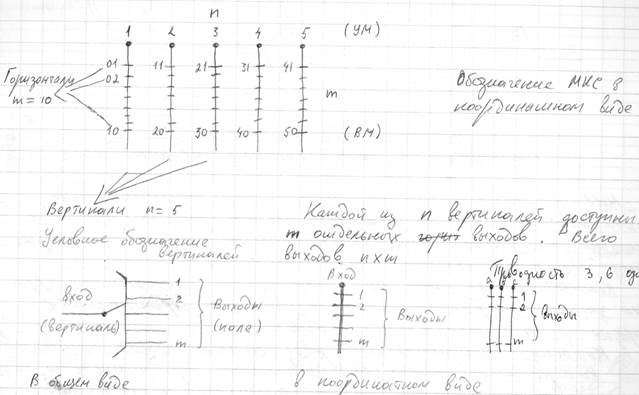 n
1 2 3 4 5 (УМ)
01 11 21 31 41
02
Горизонтали
m = 10
m
10 20 30 40 50 (ВМ)
Обозначение МКС в
координатном виде
Вертикали n = 5
Условное обозначение
вертикалей
Каждой из n вертикалей доступны
m отдельных выходов. Всего
выходов n×m
вход
(вертикаль)
1
2
m
Выходы
(поле)
В общем виде
Вход
1
2
m
Выходы
в координатном виде
Проводность 3, 6
1
2
m
выходы